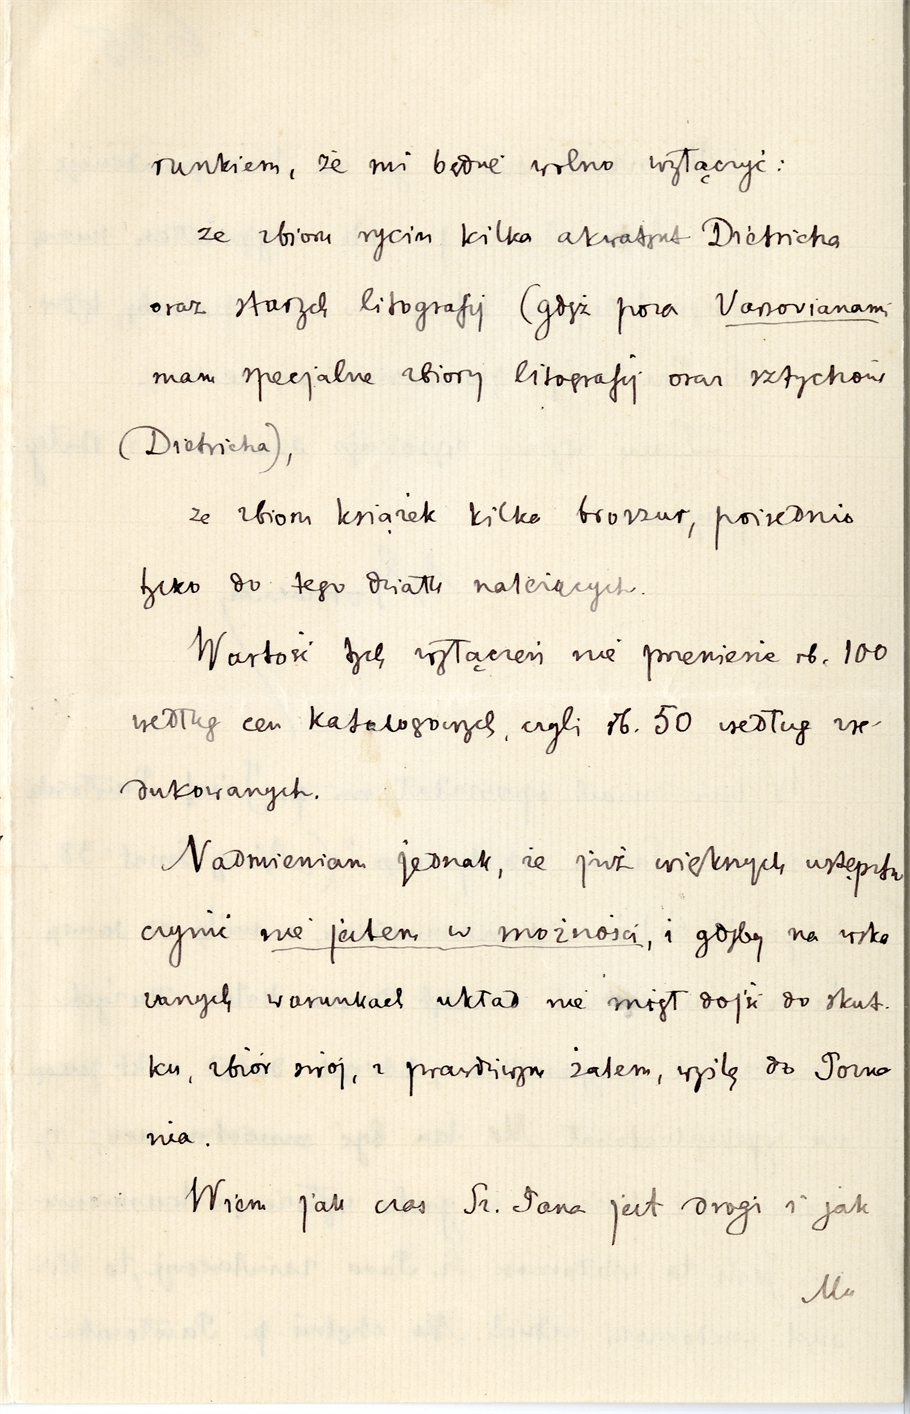 runkiem, że mi będzie wolno wyłączyć:
ze zbioru rycin kilka akwatynt Dietricha
oraz starych litografij (gdyż poza Varsovianami
mam specjalne zbiory litografij oraz sztychów
(Dietricha),
ze zbioru książek kilka broszur, pośrednio
tylko do tego działu należących.
Wartość tych wyłączeń nie przeniesie rb. 100
według cen katalogowych, czyli rb. 50 według zre-
dukowanych.
Nadmieniam jednak, że już większych ustępstw
czynić nie jestem w możności, i gdyby na wska
zanych warunkach układ nie mógł dojść do skut-
ku, zbiór swój, z prawdziwym żalem, wyślę do Pozna
nia.
Wiem jak czas Sz. Pana jest drogi i jak